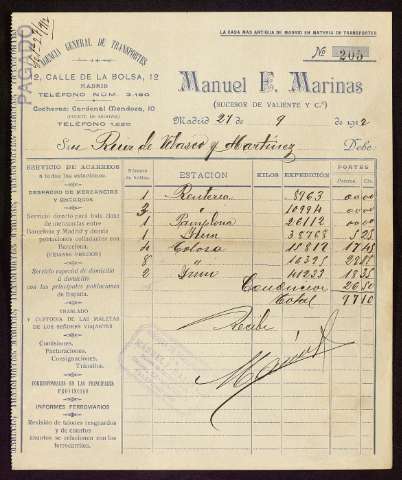 LA CASA MAS ANTIGUA DE MADRID EN MATERIA DE TRANSPORTES
PAGADO
AGENCIA GENERAL DE TRANSPORTES
12, CALLE DE LA BOLSA, 12
MADRID
TELÉFONO NÚM. 3.190
Cocheras: Cardenal Mendoza, 10
TELÉFONO 1.620
No 205
Manuel E. Marinas
(SUCESOR DE VALIENTE Y C.a)
Madrid 27 de 9 de 1912
Ruiz de Velasco y Martínez Debe:
SERVICIO DE ACARREOS
a todas las estaciones.
DESPACHO DE MERCANCÍAS
Y ENCARGOS
Servicio directo para toda clase
de mercancías entre
Barcelona y Madrid y demás
poblaciones enlazadas con
Barcelona.
Servicio especial de domicilio
á domicilio
con las principales poblaciones
de España.
TRASLADO
Y CUSTODIA DE LAS MALETAS
DE LOS SEÑORES VIAJANTES
Comisiones,
Facturaciones,
Consignaciones,
Tránsitos.
CORRESPONSALES EN LAS PRINCIPALES
PROVINCIAS
INFORMES FERROVIARIOS
Revisión de talones resguardos
y de cuantos
asuntos se relacionen con los
ferrocarriles.
Número de bultos ESTACIÓN KILOS EXPEDICIÓN PORTES
Pesetas Cts.
1 Rentería
3 " 10994
1 Pamplona 26112
1 Irún 5 25
4 Tolosa 17 45
8 "
2 Irun 41233 18 35
Conducción 26 50
Total 97 10
Recibí